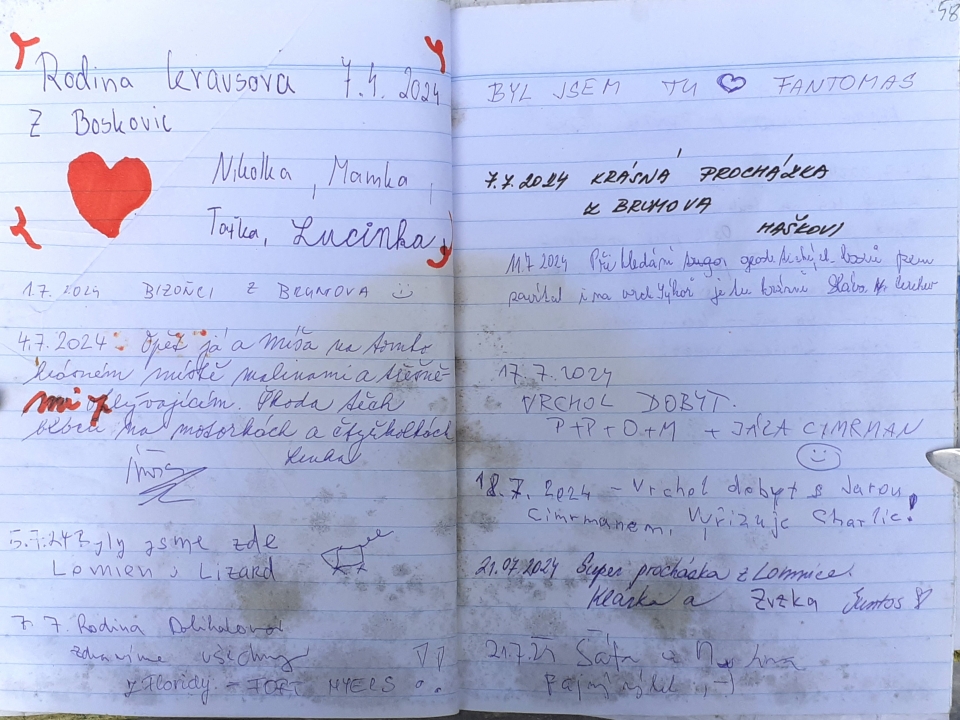 Rodina Krausova 7.4. 2024
Z Boskovic
Nikolka, Mamka,
Taťka, Lucinka
1.7. 2024 BIZOŇCI Z BRUMOVA
4.7.2024 Opět já a Míša na tomto
krásném místě malinami a třešně-
mi oplývajícím. Škoda těch
blbců na motorkách a čtyřkolkách
Lenka
5.7.24 Byly jsme zde
Lomien s Lizard
7. 7. Rodina
zdravíme všechny
z Floridy - FORT MYERS
58
BYL JSEM TU FANTOMAS
7.7.2024 KRÁSNÁ PROCHÁZKA
Z BRUMOVA
HAŠKOVI
11.7 2024 Při hledání geodetických bodů jsem
zavítal i na vrch Sýkoř je tu krásně Sláva
17.7.2024
VRCHOL DOBYT.
P+P+O+M + JÁRA CIMRMAN
18.7. 2024 - Vrchol dobyt s Jarou
Cimrmanem, Vyřizuje Charlie!
21.07.2024 Super procházka z Lomnice.
Klárka a Zuzka
21.7.24 Šáťa a